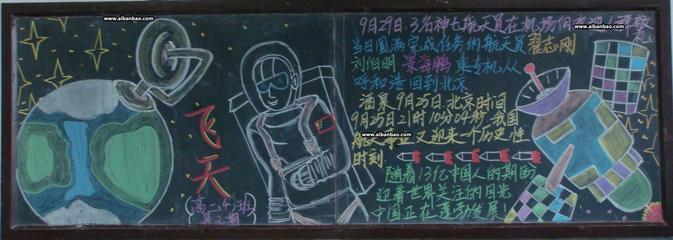 www.aibanbao.com
www.aibanbao.com
www.aibanbao.com
飞天
高二(4)班
第2期
9月29日 3名神七航天员在机场向
当日圆满完成任务的航天员 翟志刚
刘伯明 景海鹏 乘专机从
呼和浩 回到北京
酒泉9月25日 北京时间
9月25日21时10分04秒 我国
航天事业又迎来一个历史性
时刻
随着13亿中国人的期盼
迎着世界关注的目光
中国正在蓬勃发展